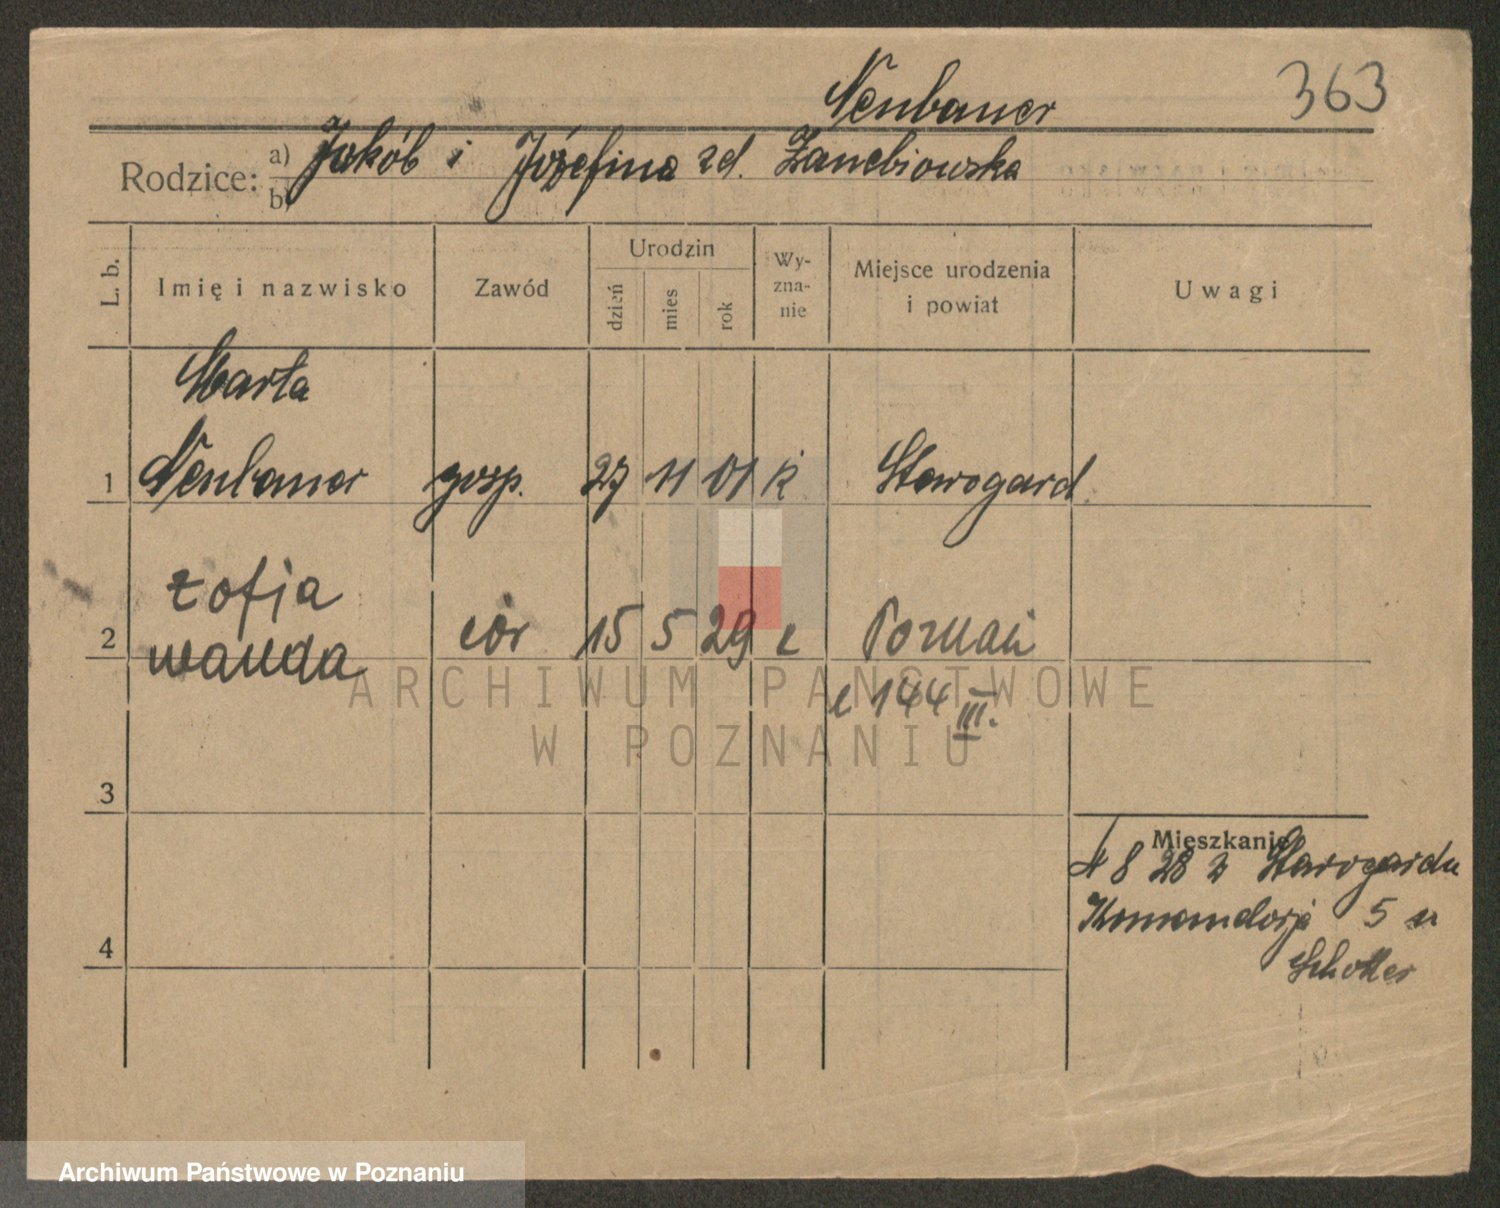 Neubauer 363
Rodzice: a) Jakób i Józefina zd.
b)
L. b. Imię i nazwisko Zawód Urodzin dzień mies rok Wy-zna-nie Miejsce urodzenia i powiat Uwagi
Marta
1 Neubauer gosp. 27 11 01 k Starogard
Zofja
2 Wanda cór 15 5 29 k Poznań
144 III.
3
Mieszkanie
8 28 z Starogardu
Komandorja 5
4
ARCHIWUM PAŃSTWOWE
W POZNANIU
Archiwum Państwowe w Poznaniu